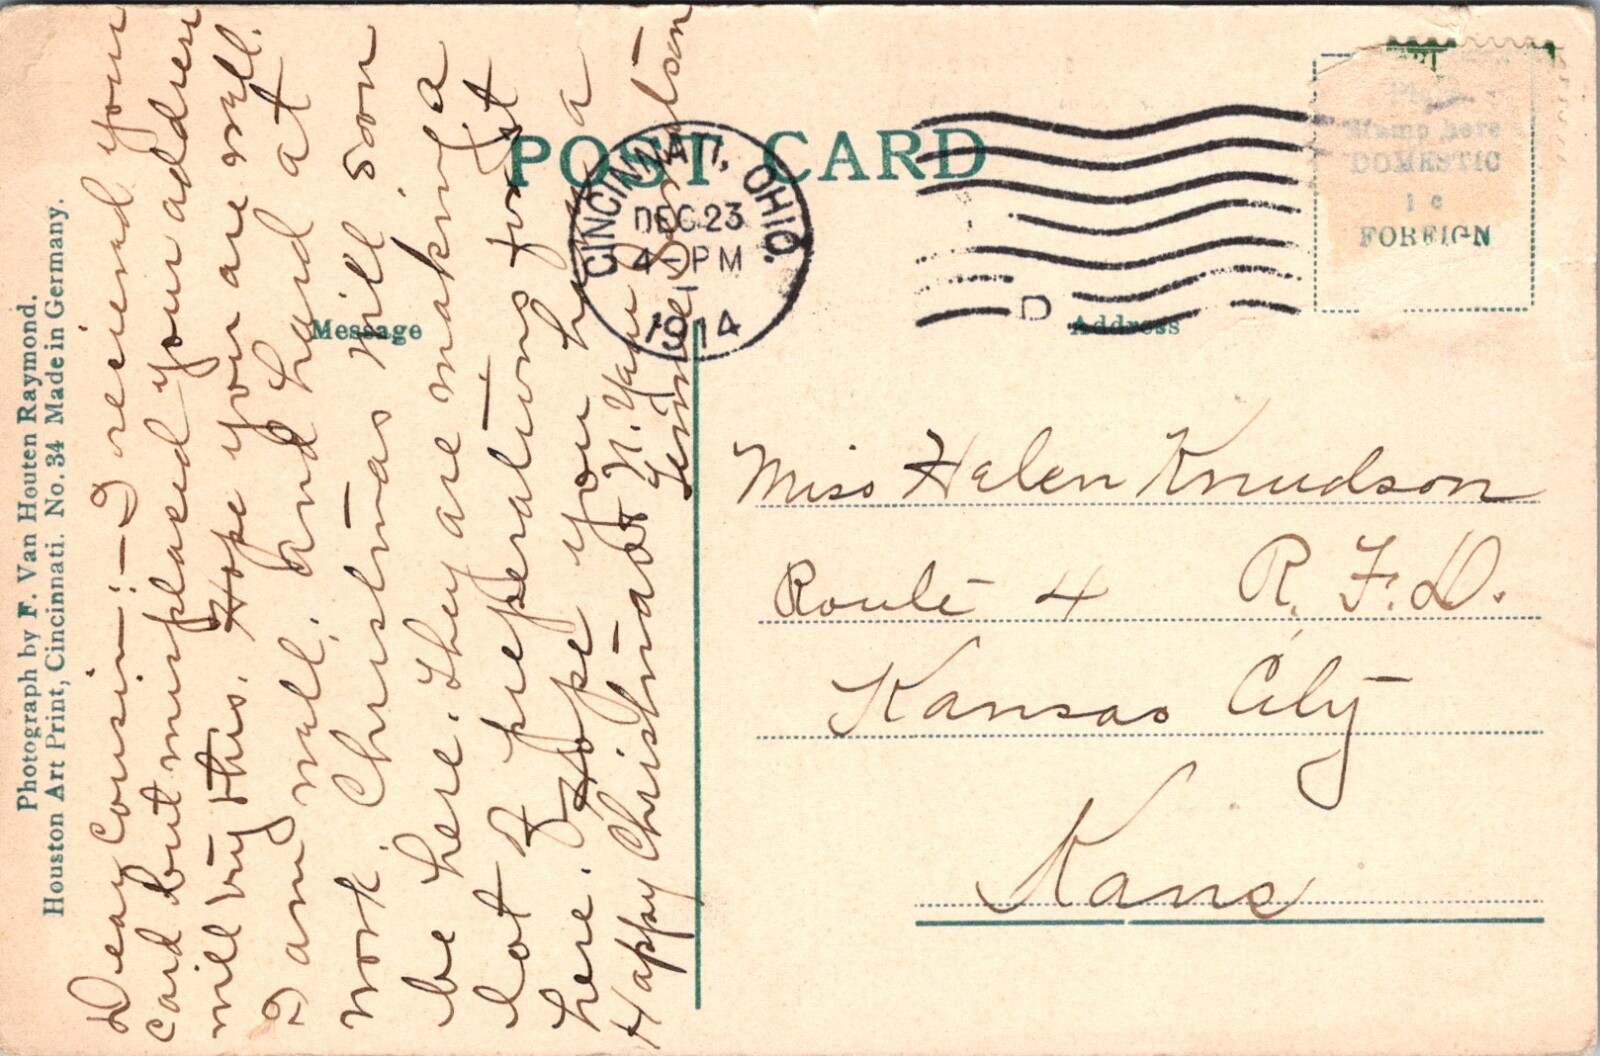 POST CARD
CINCINNATI, OHIO.
DEC 23
4-PM
1914
D
stamp here
DOMESTIC
1 c
FOREIGN
Message
Address
Photograph by F. Van Houten Raymond.
Houston Art Print, Cincinnati. No. 34 Made in Germany.
Dear Cousin:— I received your
card but misplaced your address
will try this. Hope you are well.
I am well. and hard at
work. Christmas will soon
be here. They are making a
lot of preperations for it
here. I Hope you have a
Happy Christmas & N. Year
Miss Helen Knudson
Route 4 R. F. D.
Kansas City
Kans